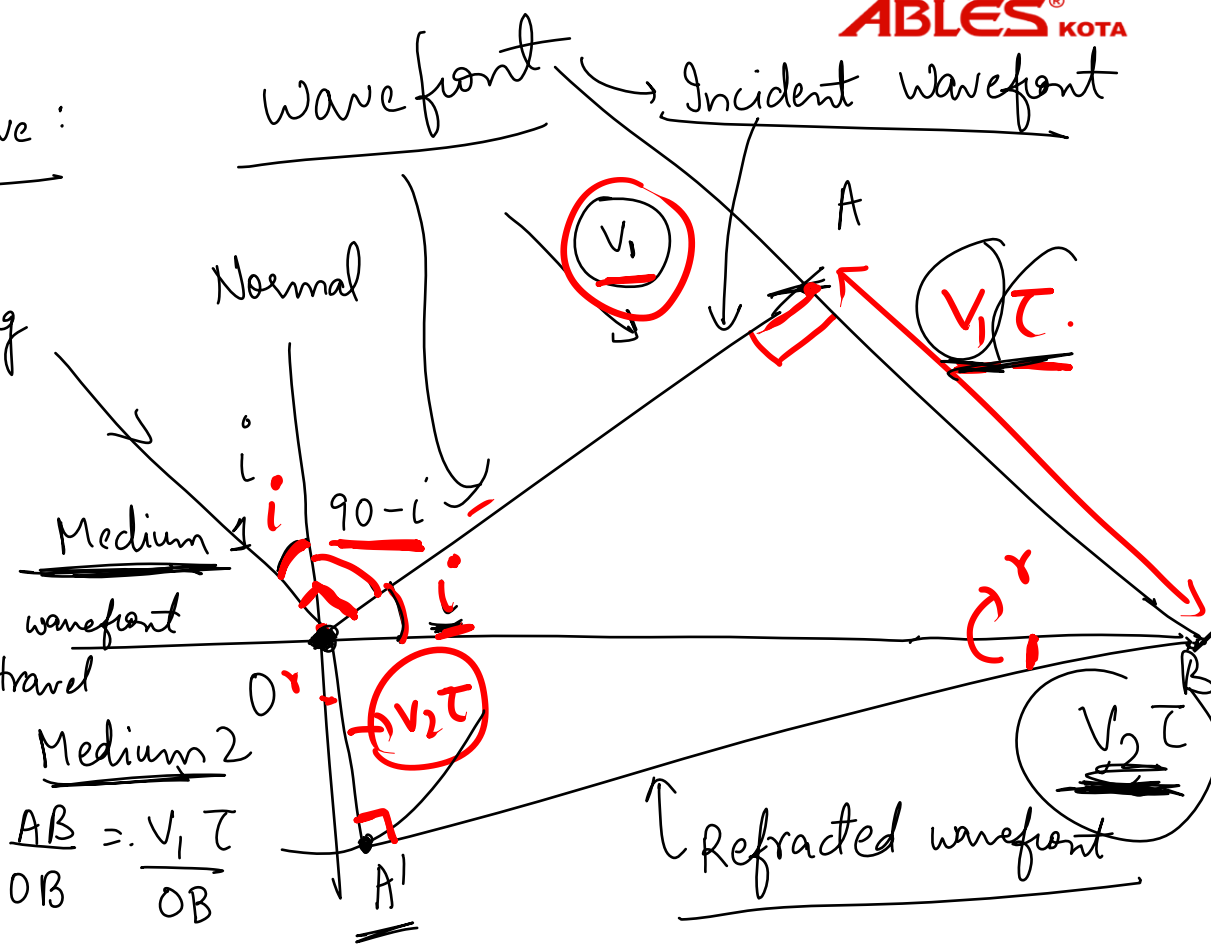 ABLES® KOTA
ve :
wavefront
Incident wavefront
A
V₁
Normal
V₁ τ.
g
i
i
90-i
i
Medium 1
r
wavefront
travel
O
r
V₂ τ
B
Medium 2
V₂ τ
AB/OB = V₁ τ/OB
Refracted wavefront
A'